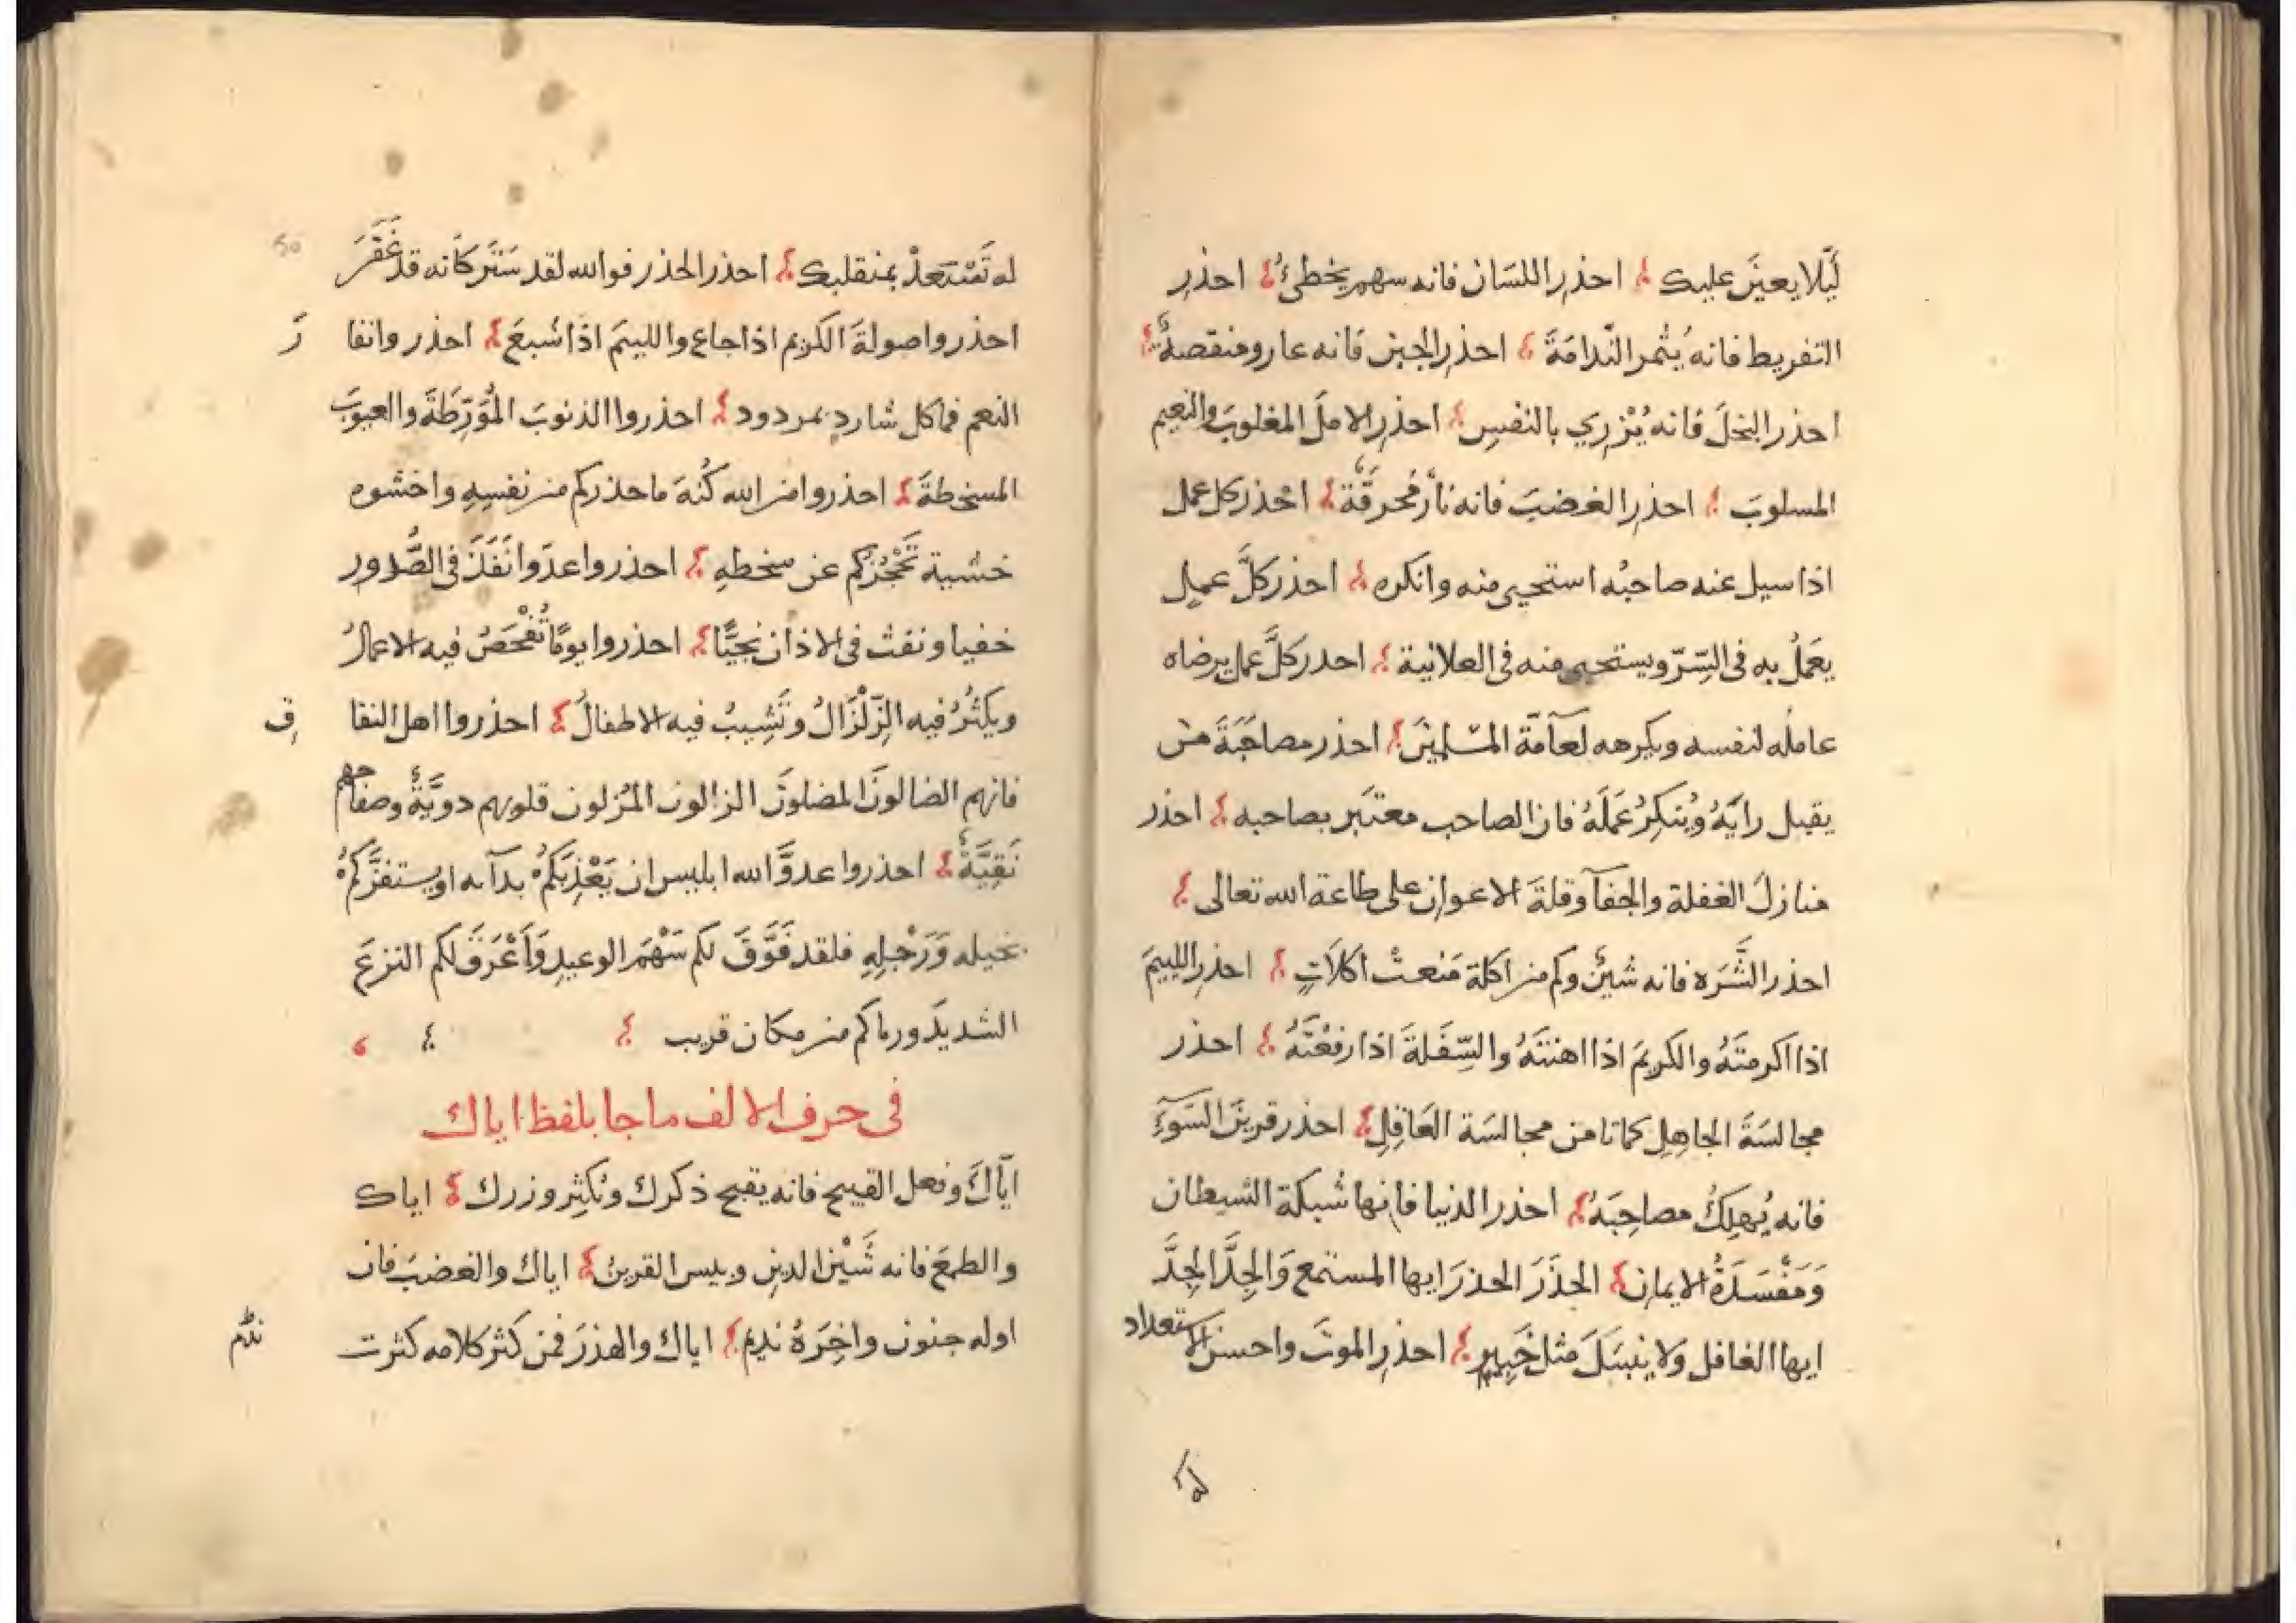 لَيّلا يعينَ عليك احذرِ اللسَان فانه سهم يخطئُ احذرِ
التفريط فانه يُثمر النّدامَةَ احذرِ الجبن فَانه عار ومنقصةٌ
احذر البخلَ فَانه يُزْرِي بالنفسِ احذرِ الامَلَ المغلوبَ والنعيم
المسلوبَ احذرِ الغضبَ فانه نارٌ مُحرقَةٌ احْذر كل عمل
اذا سيل عنه صاحبُه استحيى منه وانكره احذر كلَّ عملٍ
يعمَلُ به فى السّرّ ويستحيى منه فى العلانية احدر كلَّ عمل يرضاه
عاملُه لنفسه ويكرهه لعآمّة المسْلمينَ احذر مصاحَبَةَ مَنْ
يقبل رايَهُ ويُنكِرُ عَمَلَهُ فان الصاحب معتبَر بصاحبه احذر
منازلَ الغفلة والجفآ وقلةَ الاعوان على طاعة الله تعالى
احذر الشَّرَه فانه شينٌ وكم من اكلة مَنعتْ اكلَاتٍ احذرِ اللييمَ
اذا اكرمتَهُ والكريمَ اذا اهنتَهُ والسِّفَلةَ اذا رفعْتَهُ احذر
مجالسَةَ الجاهِلِ كما تامن مجالسَة العَاقِلِ احذر قرينَ السّوءِ
فانه يُهلِكُ مصاحِبَهُ احذر الدنيا فانها شبكة الشيطان
وَمَفْسَدَةُ الايمان الحذَرَ الحذرَ ايها المستمع وَالجِدَّ الجِدَّ
ايها الغافل وَلا ينبئكَ مثل خَبِيرٍ احذرِ الموتَ واحسن الاستعداد
له
له تَسْتَعدْ بمنقلبك احذر الحذر فوالله لقد سَتَرَ كَانه قد غَفَرَ
احذروا صولةَ الكريم اذا جاع واللييمَ اذا شبعَ احذروا نفا رَ
النعم فما كل شاردٍ بمردود احذروا الذنوبَ المُوَرِّطَةَ والعيوبَ
المسخطةَ احذروا من الله كُنْهَ ما حذركم من نفسِهِ واخشوه
خشية تَحْجُزُكم عن سخطهِ احذروا عدوا نَفَذَ فى الصُّدور
خفيا ونفث فى الاذان نجيًّا احذروا يومًا تُفْحَصُ فيه الاعمالُ
ويكثرُ فيه الزّلْزَالُ وتَشِيبُ فيه الاطفالُ احذروا اهل النفا قِ
فانهم الضالونَ المضلونَ الزالون المُزلون قلوبهم دويَّةٌ وصفاحهم
نَقِيَّةٌ احذروا عدوَّ الله ابليس ان يَعْذِبَكمُ بدآىه او يستفزَّكمُ
بخيله وَرَجْلِهِ فلقد فَوَّقَ لكم سَهْمَ الوعيدِ وَاَعْرَقَ لكم النزعَ
الشديدَ ورماكم من مكان قريب
فى حرف الالف ما جا بلفظ اياك
ايّاكَ وفعل القبيح فانه يقبح ذكرك ويُكثِر وزرك اياك
والطمعَ فانه شَيْن الدينِ وبيس القرينُ اياك والغضبَ فان
اوله جنون واخِرَهُ ندم اياك والهذرَ فمن كثر كلامه كثرت
ندم